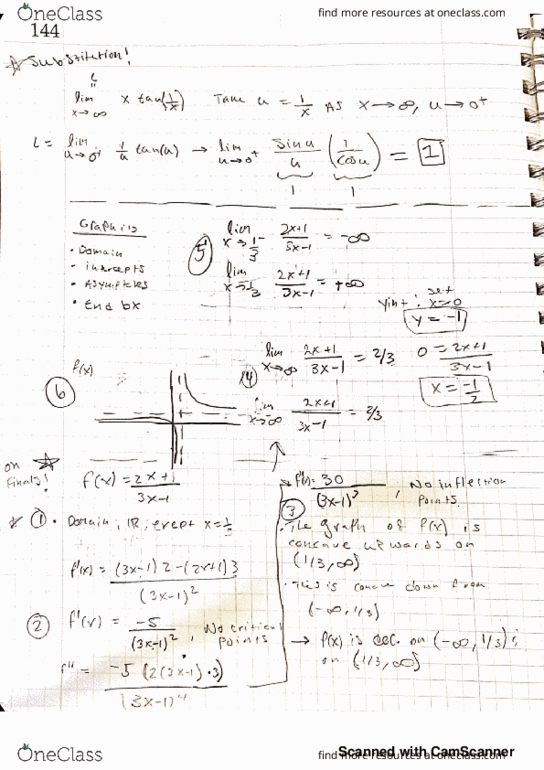 OneClass
find more resources at oneclass.com
144
Substitution!
L
=
lim x→∞ x tan(1/x) Take u = 1/x As x→∞, u→0⁺
L = lim u→0⁺ 1/u tan(u) → lim u→0⁺ sin u/u (1/cos u) = 1
1 1
Graphing
• Domain
- intercepts
• Asymptotes
• End bx
5
lim x→1/3⁻ 2x+1/3x-1 = -∞
lim x→1/3 2x+1/3x-1 = +∞
yint: set x=0
y = -1
(4) lim x→∞ 2x+1/3x-1 = 2/3
0 = 2x+1/3x-1
x = -1/2
lim x→-∞ 2x+1/3x-1 = 2/3
6
f(x)
on Finals!
f(x) = 2x+1/3x-1
1 • Domain, IR, except x=1/3
f'(x) = (3x-1)2-(2x+1)3/(3x-1)²
2 f'(x) = -5/(3x-1)², No critical points
f'' = -5(2(3x-1)•3)/(3x-1)⁴
f''(x) = 30/(3x-1)³, No inflection points.
3
• The graph of f(x) is
concave upwards on
(1/3,∞)
• This is concave down from
(-∞,1/3)
→ f(x) is dec. on (-∞,1/3);
on (1/3,∞)
Scanned with CamScanner
OneClass
find more resources at oneclass.com